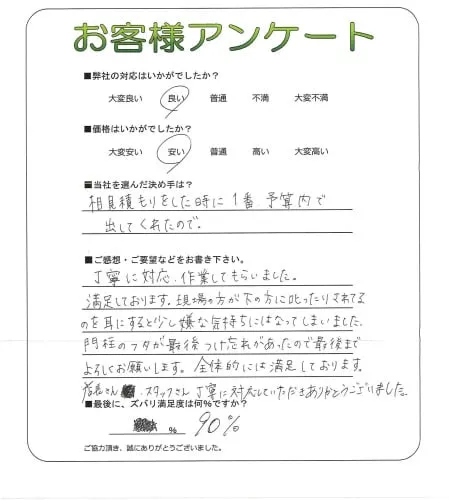 お客様アンケート
■弊社の対応はいかがでしたか?
大変良い 良い 普通 不満 大変不満
■価格はいかがでしたか?
大変安い 安い 普通 高い 大変高い
■当社を選んだ決め手は?
相見積もりをした時に1番、予算内で
出してくれたので。
■ご感想・ご要望などをお書き下さい。
丁寧に対応、作業してもらいました。
満足しております。現場の方が下の方に叱ったりされてる
のを耳にすると少し嫌な気持ちにはなってしまいました。
門柱のフタが最後つけ忘れがあったので最後まで
よろしくお願いします。全体的には満足しております。
店長さん、スタッフさん丁寧に対応していただきありがとうございました。
■最後に、ズバリ満足度は何%ですか?
% 90%
ご協力頂き、誠にありがとうございました。